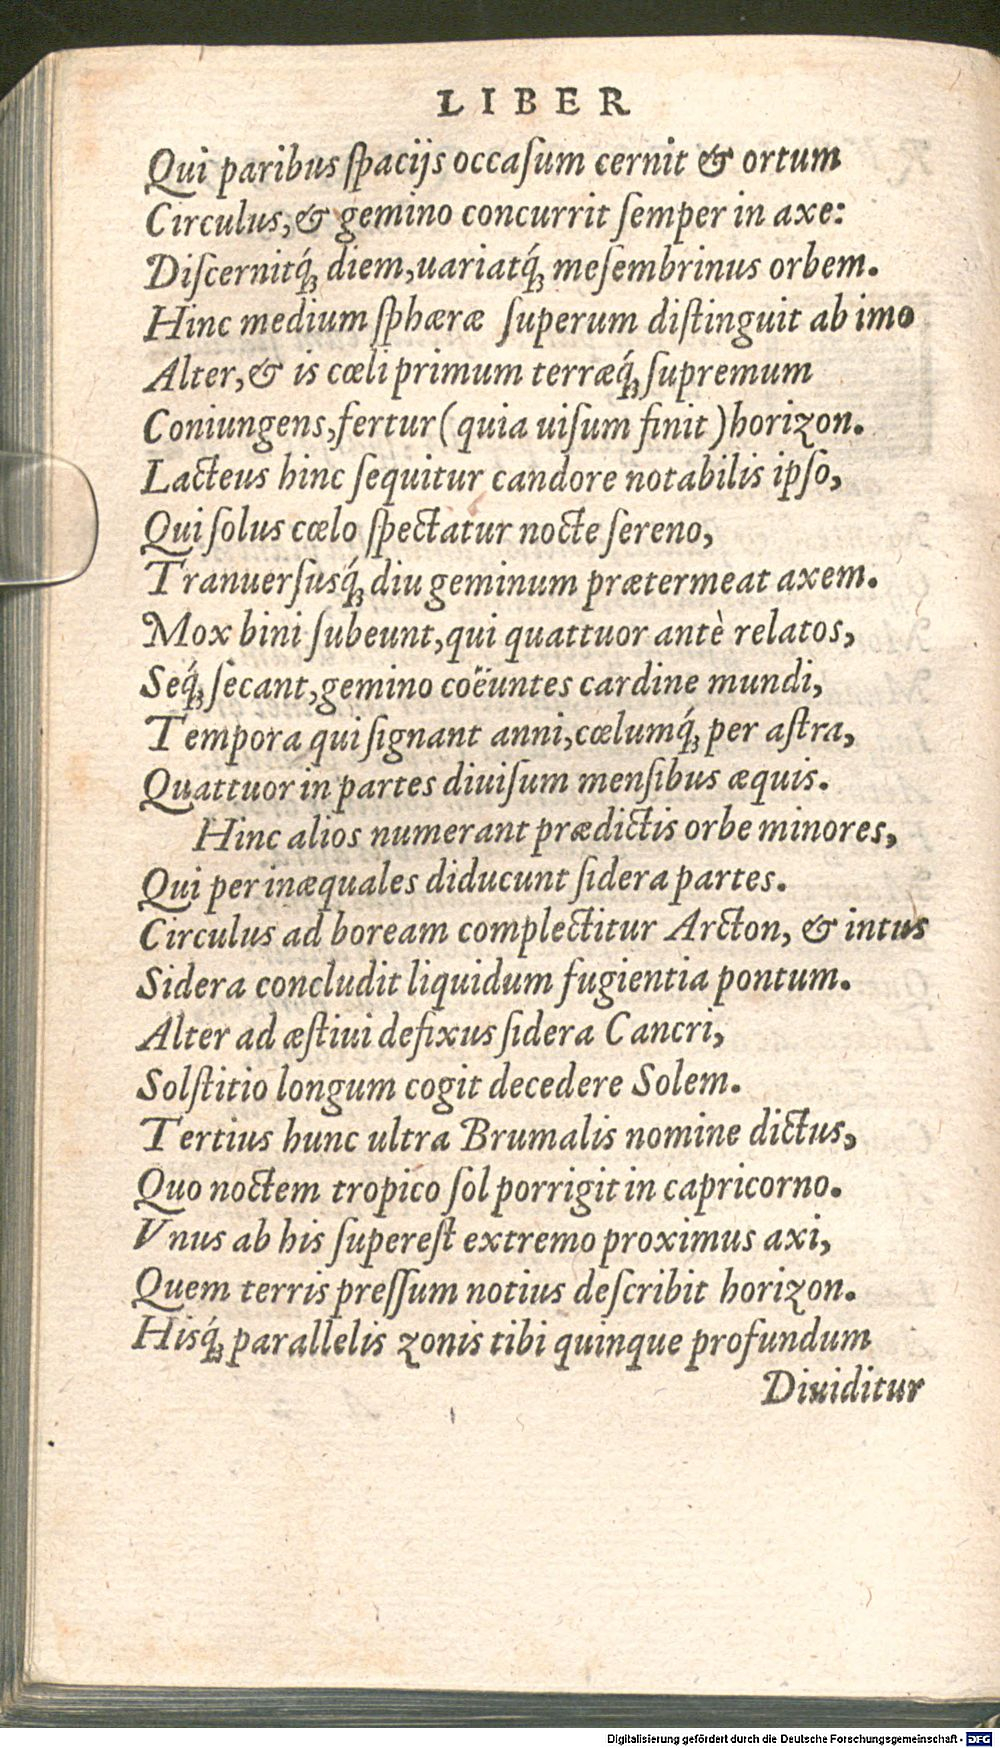 LIBER
Qui paribus ſpacijs occaſum cernit & ortum
Circulus,& gemino concurrit ſemper in axe:
Diſcernitq́; diem,uariatq́; meſembrinus orbem.
Hinc medium ſphæræ ſuperum diſtinguit ab imo
Alter,& is cœli primum terræq́; ſupremum
Coniungens,fertur (quia uiſum finit) horizon.
Lacteus hinc ſequitur candore notabilis ipſo,
Qui ſolus cœlo ſpectatur nocte ſereno,
Tranuerſusq́; diu geminum prætermeat axem.
Mox bini ſubeunt,qui quattuor antè relatos,
Seq́; ſecant,gemino coëuntes cardine mundi,
Tempora qui ſignant anni,cœlumq́; per aſtra,
Quattuor in partes diuiſum menſibus æquis.
Hinc alios numerant prædictis orbe minores,
Qui per inæquales diducunt ſidera partes.
Circulus ad boream complectitur Arcton, & intus
Sidera concludit liquidum fugientia pontum.
Alter ad æſtiui defixus ſidera Cancri,
Solſtitio longum cogit decedere Solem.
Tertius hunc ultra Brumalis nomine dictus,
Quo noctem tropico ſol porrigit in capricorno.
Vnus ab his ſupereſt extremo proximus axi,
Quem terris preſſum notius deſcribit horizon.
Hisq́; parallelis zonis tibi quinque profundum
Diuiditur
Digitalisierung gefördert durch die Deutsche Forschungsgemeinschaft - DFG